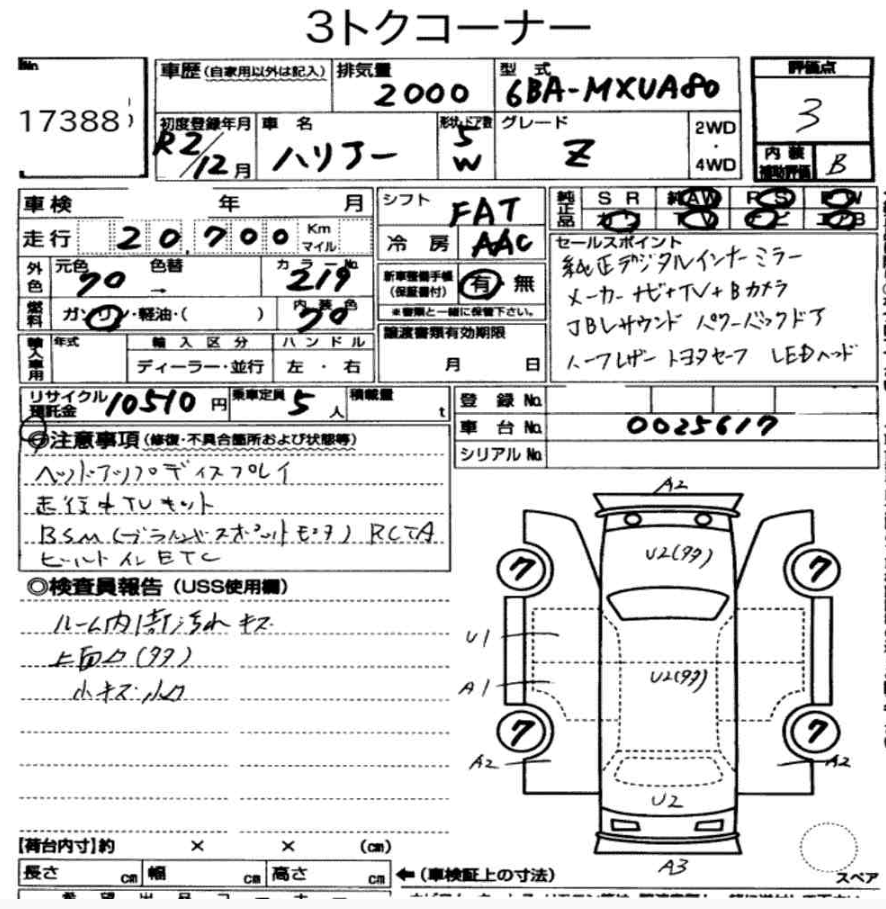 3トクコーナー
No
17388
車歴(自家用以外は記入)
排気量
2000
型式
6BA-MXUA80
評価点
3
初度登録年月
R2/12月
車名
ハリアー
形状・ドア数
5
W
グレード
Z
2WD
・
4WD
内装
補助評価
B
車検 年 月
走行 20,700 Km
マイル
シフト
FAT
冷房 AAC
純正品
SR
AW
エアB
外色
元色
クロ
色替
→
カラーNo.
219
燃料
ガソリン・軽油・( )
内装色
クロ
新車整備手帳
(保証書付)
有・無
※書類と一緒に保管下さい。
セールスポイント
純正デジタルインナーミラー
メーカーナビ+TV+Bカメラ
JBLサウンド パワーバックドア
ハーフレザー トヨタセーフ LEDヘッド
輸入車用
年式
輸入区分
ハンドル
ディーラー・並行
左・右
譲渡書類有効期限
月 日
リサイクル
預託金
10510円
乗車定員
5人
積載量
t
登録No.
車台No. 0025617
シリアルNo.
◎注意事項(修復・不具合箇所および状態等)
ヘッドアップディスプレイ
走行中TVキット
BSM(ブラインドスポットモニタ) RCTA
ビルトインETC
◎検査員報告(USS使用欄)
ルーム内 汚れ キズ
上面凹(タタ)
小キズ 小凹
A2
U2(タタ)
7
7
U1
A1
U2(タタ)
7
7
A2
A2
U2
A3
スペア
【荷台内寸】約 × × (cm)
長さ cm 幅 cm 高さ cm
←(車検証上の寸法)